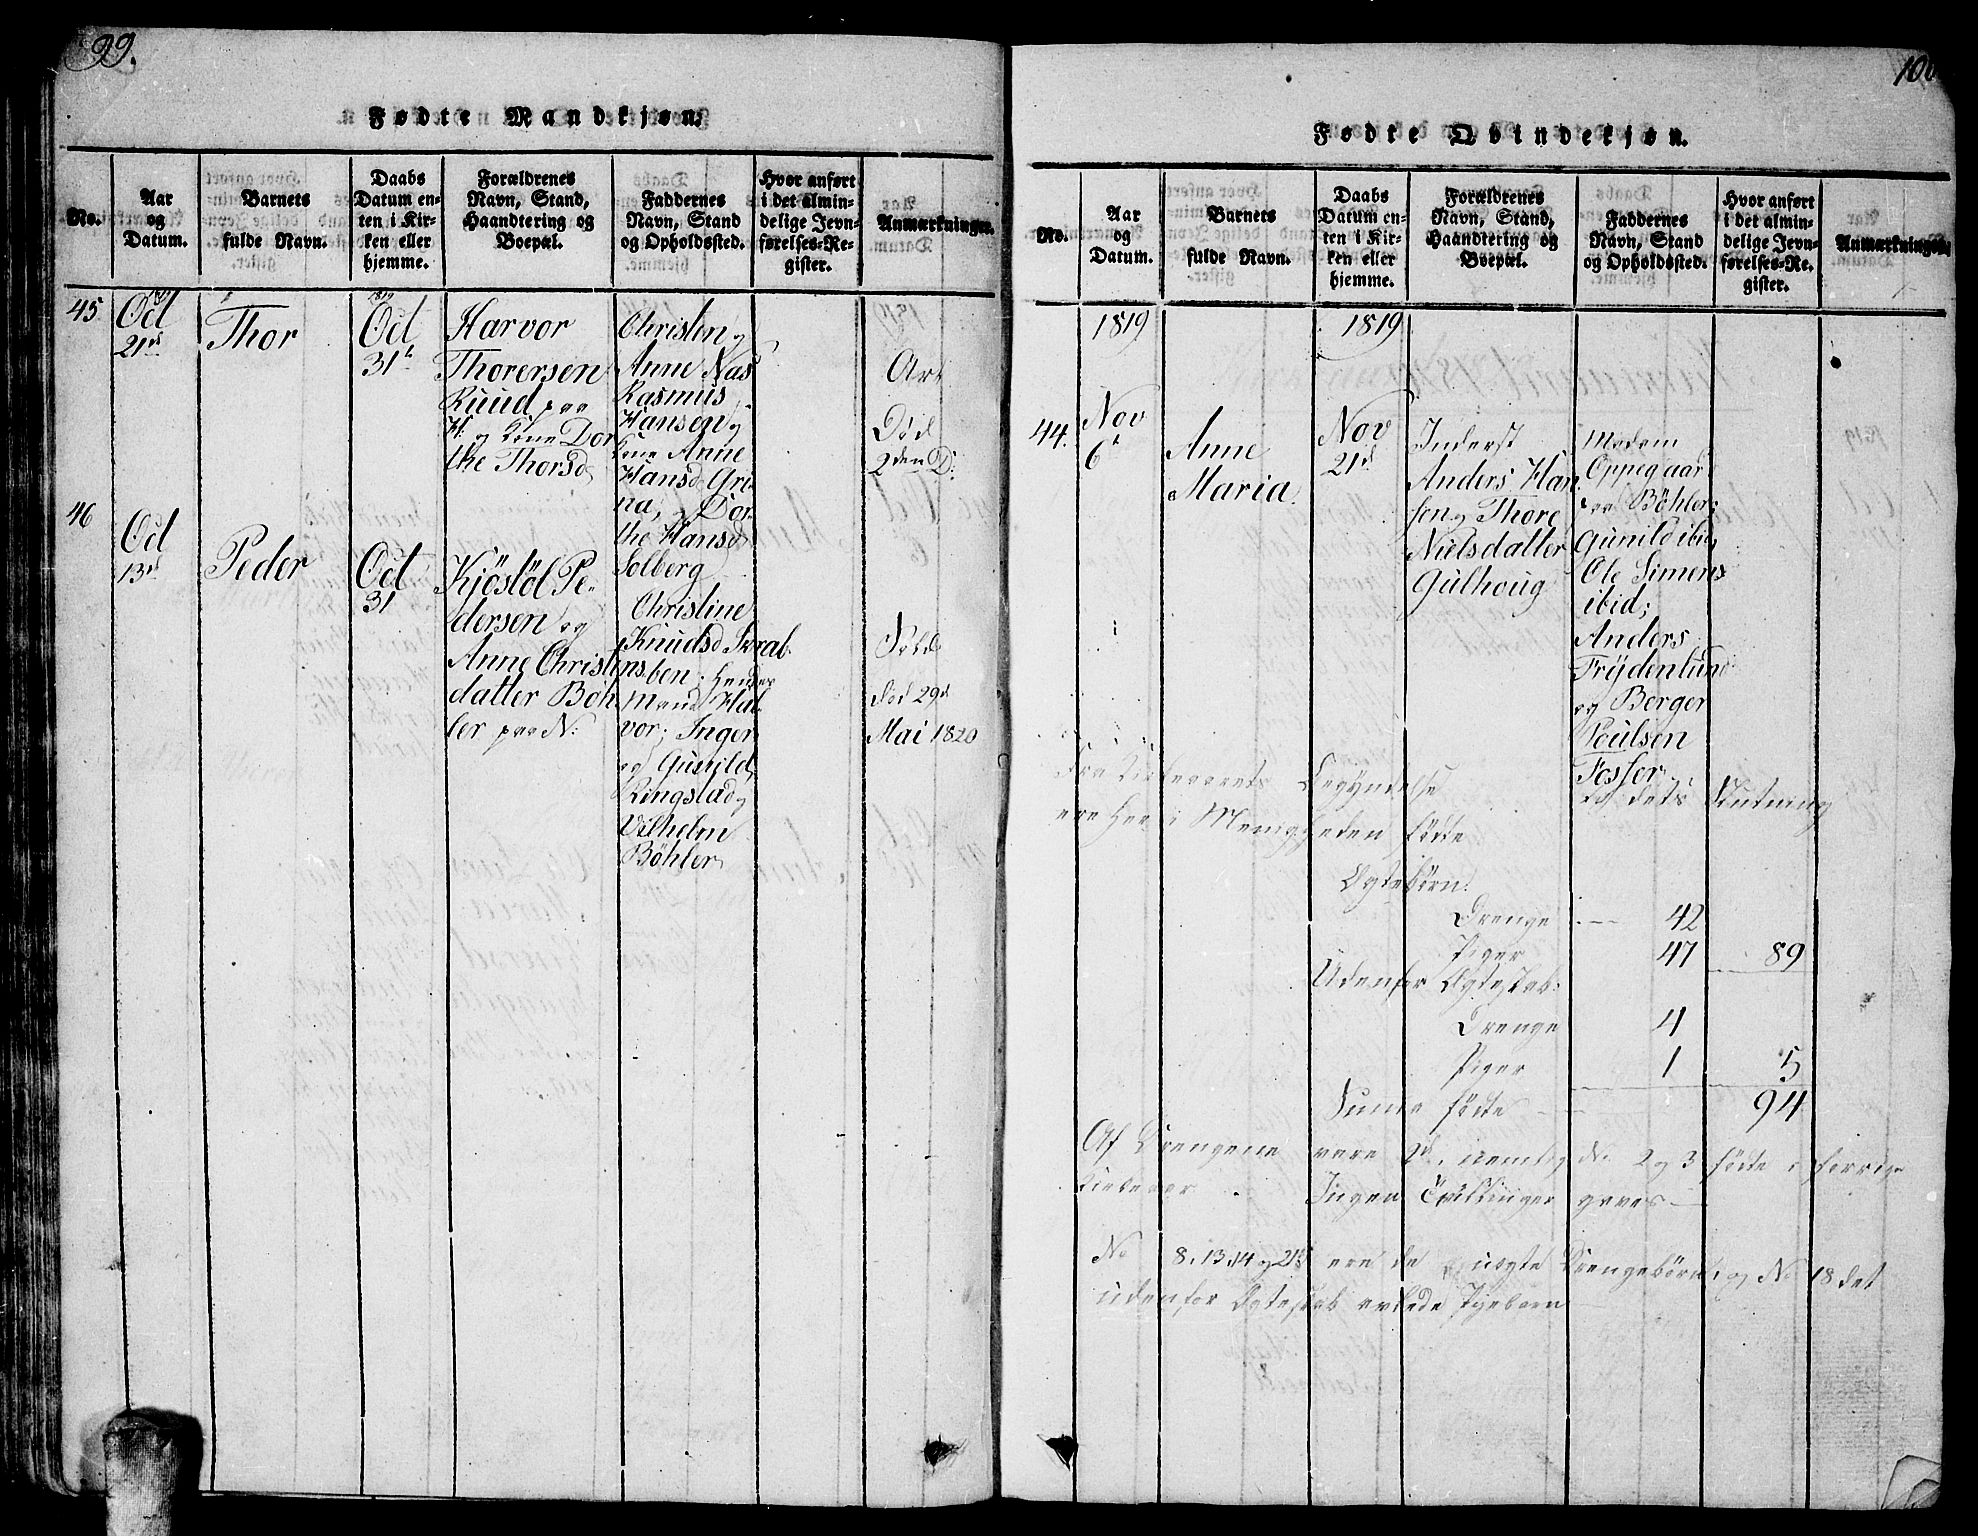 99.
Fødte Mandkjøn.
No.
Aar
og
Datum.
Barnets
fulde Navn.
Daabs
Datum en-
ten i Kir-
ken eller
hjemme.
Forældrenes
Navn, Stand,
Haandtering og
Boepæl.
Faddernes
Navn, Stand
og Opholdssted.
Hvor anført
i det almin-
delige Jevn-
førelses-Re-
gister.
Anmærkninger.
45
1819
Oct
21d
Thor
1819
Oct
31t
Harvor
Thorersen
Ruud paa
H: og Kone Dor
the Thorsd
Christen og
Anne Næs
Rasmus
Hansen og
Kone Anne
Hansd Gri-
na, og Dor-
the Hansd
Solberg
Død
2den D:
46
Oct
13d
Peder
Oct
31
Kjöstöl Pe-
dersen og
Anne Christens
datter Böh-
ler paa N:
Christine
Knudsd Skrab-
ben. Hendes
Mand Hal-
vor; Inger
og Gunild
Ringstad og
Vilhelm
Böhler
død 29d
Mai 1820
100
Fødte Qvindekjøn.
No.
Aar
og
Datum.
Barnets
fulde Navn.
Daabs
Datum en-
ten i Kir-
ken eller
hjemme.
Forældrenes
Navn, Stand,
Haandtering og
Boepæl.
Faddernes
Navn, Stand
og Opholdssted.
Hvor anført
i det almin-
delige Jevn-
førelses-Re-
gister.
Anmærkninger.
1819
1819
44.
Nov
6t
Anne
Maria
Nov
21d
Inderst
Anders Han-
sen og Thore
Nielsdatter
Gulhoug
Madam
Oppegaar
paa Böhler;
Gunild ibid,
Ole Simens
ibid;
Anders
Frydenlund
og Berger
Poulsen
Fosser
Fra Kirkeaarets Begyndelse til dets Slutning
ere her i Menigheden födte
Ægtebörn:
Drenge 42
Piger 47 89
Udenfor Ægteskab:
Drenge 4
Piger 1 5
Suma födte 94
Af Drengene vare 2de, nemlig No 2 og 3 födte i forrige
Kirkeaar. Ingen Tvillinger gaves
No 8, 13, 14 og 21 ere de uægte Drengebörn, og No 18 det
udenfor Ægteskab avlede Pigebarn